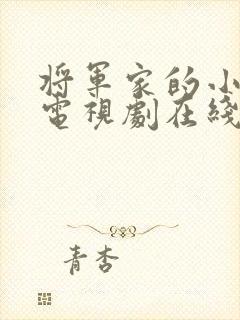 將軍家的小
電視劇在綫
青杏